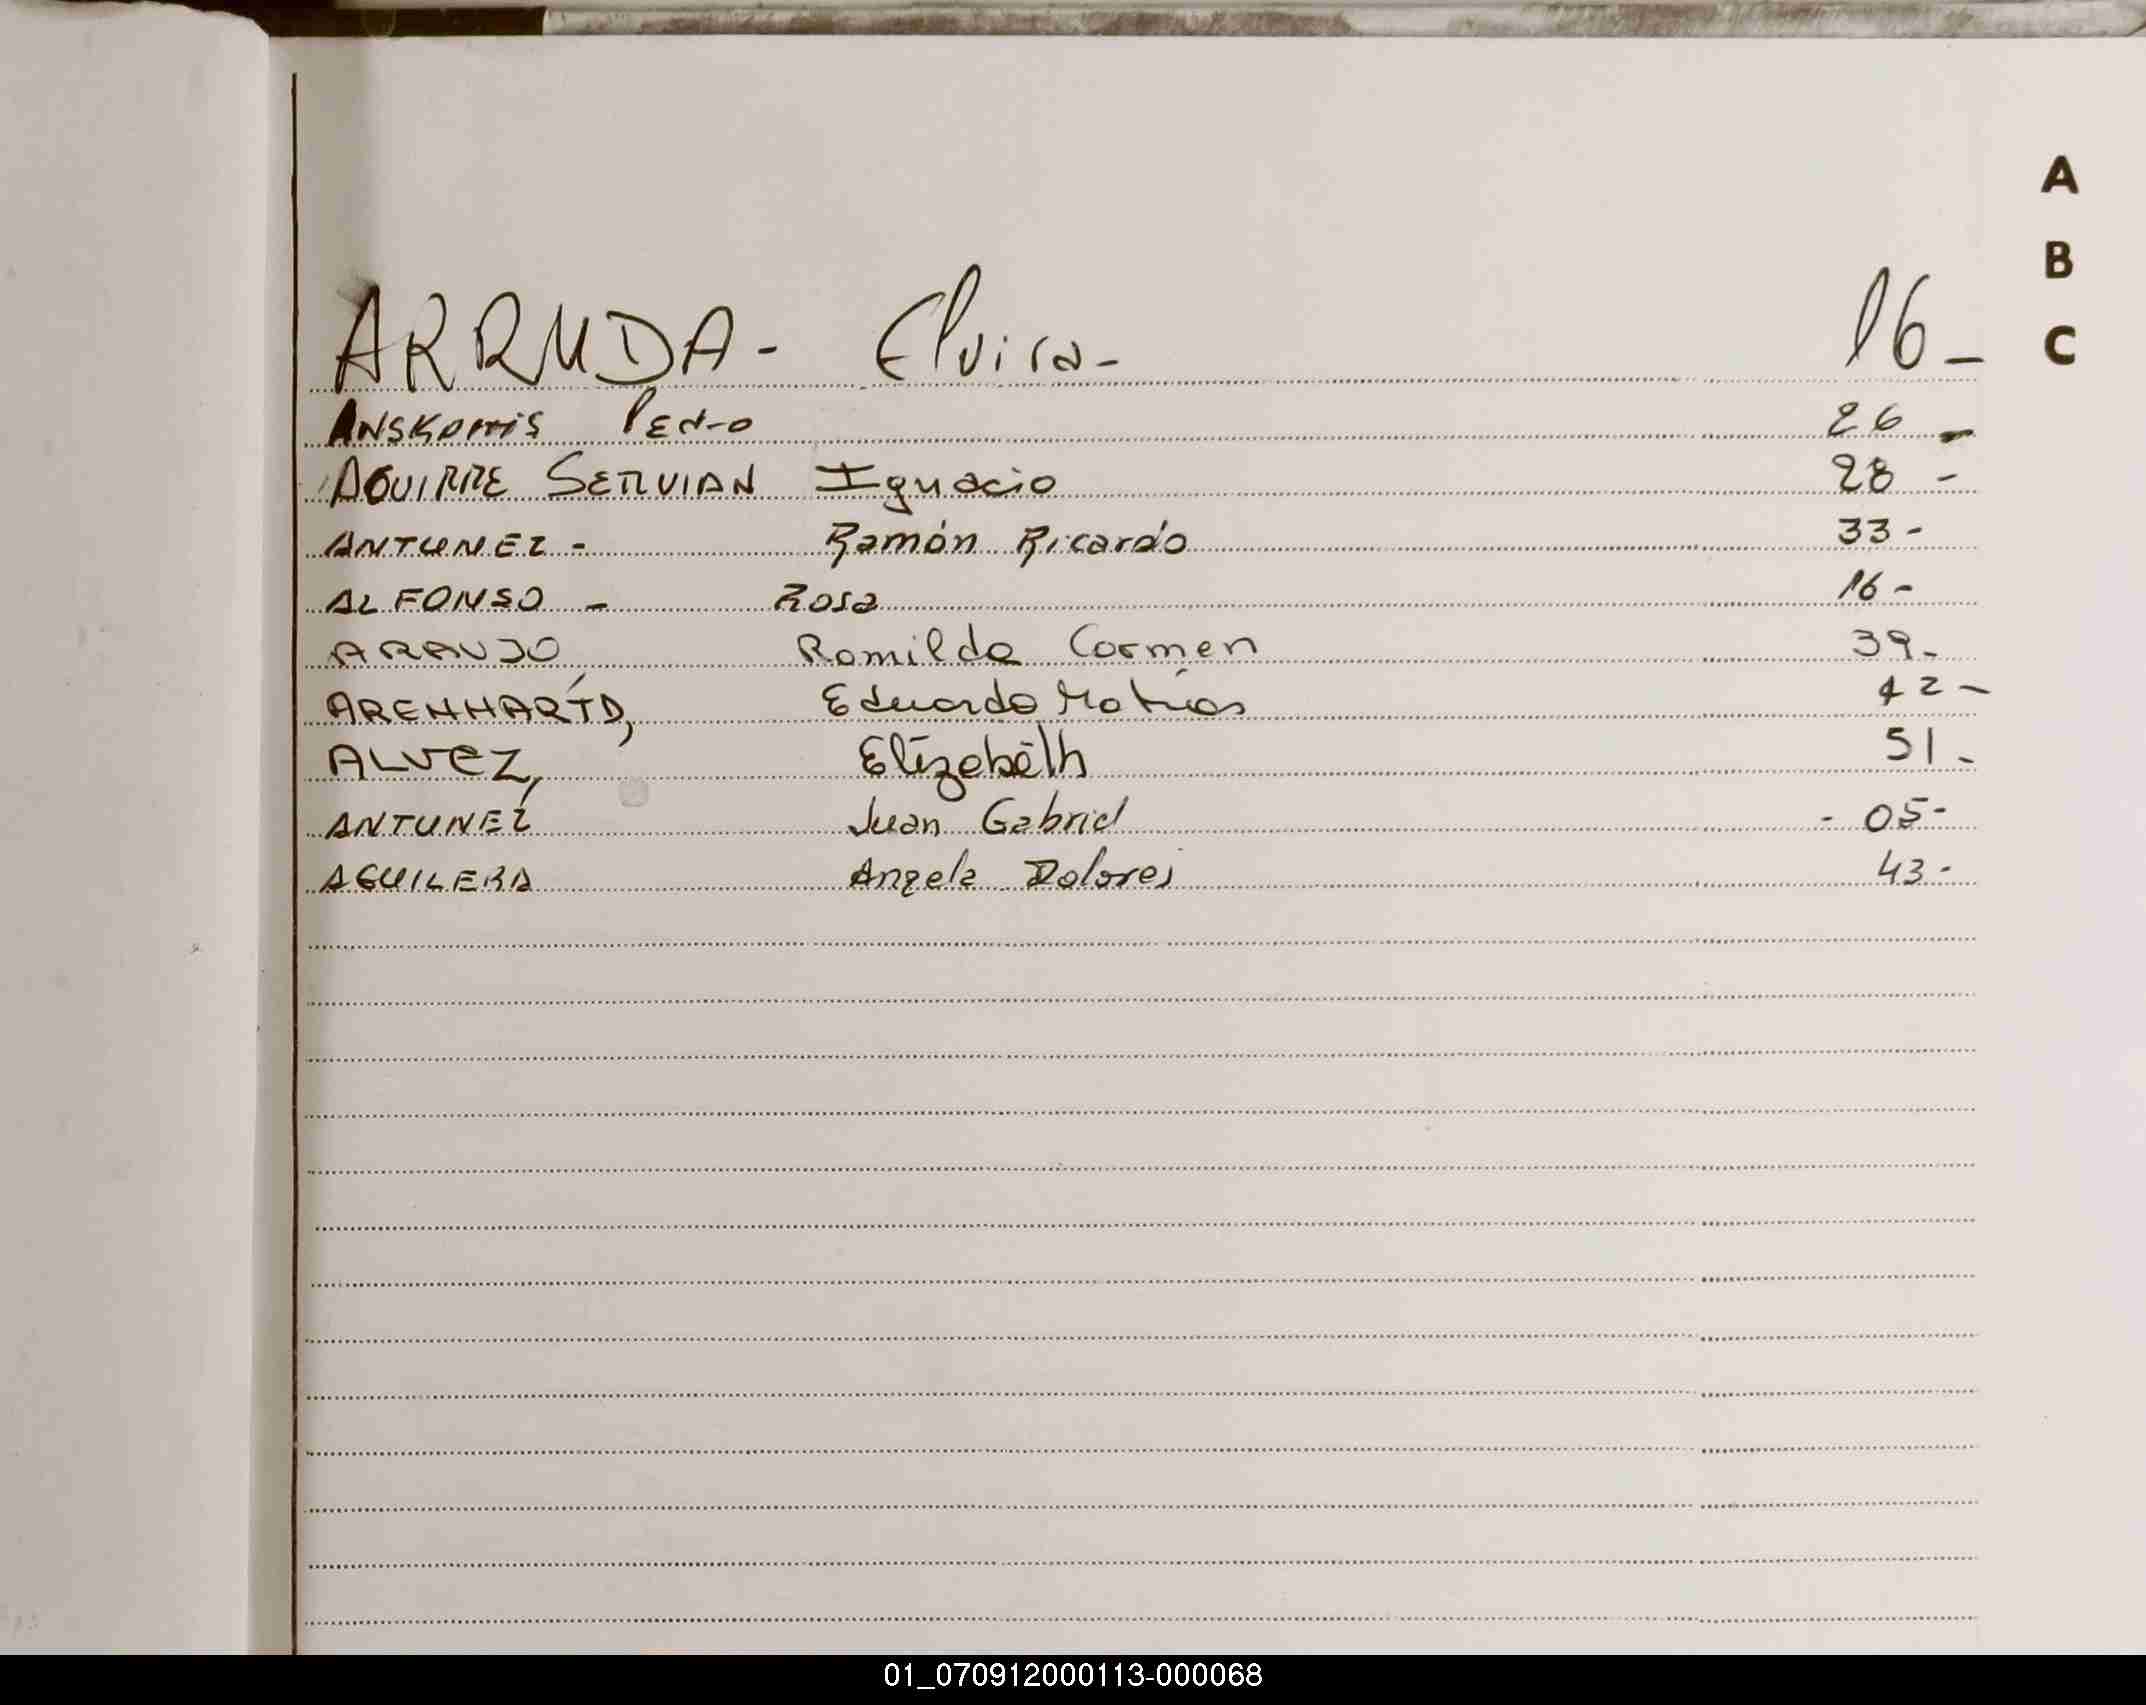 A
B
C
ARRUDA - Elvira - 16 -
ANSKOHIS Pedro 26 -
AGUIRRE SERVIAN Ignacio 28 -
ANTUNEZ - Ramón Ricardo 33 -
ALFONSO - Rosa 16 -
ARAUJO, Romilda Carmen 39 -
ARENHARTD, Eduardo Matías 42 -
ALVEZ, Elizabeth 51 -
ANTUNEZ Juan Gabriel - 05 -
AGUILERA Angela Dolores 43 -
01_070912000113-000068